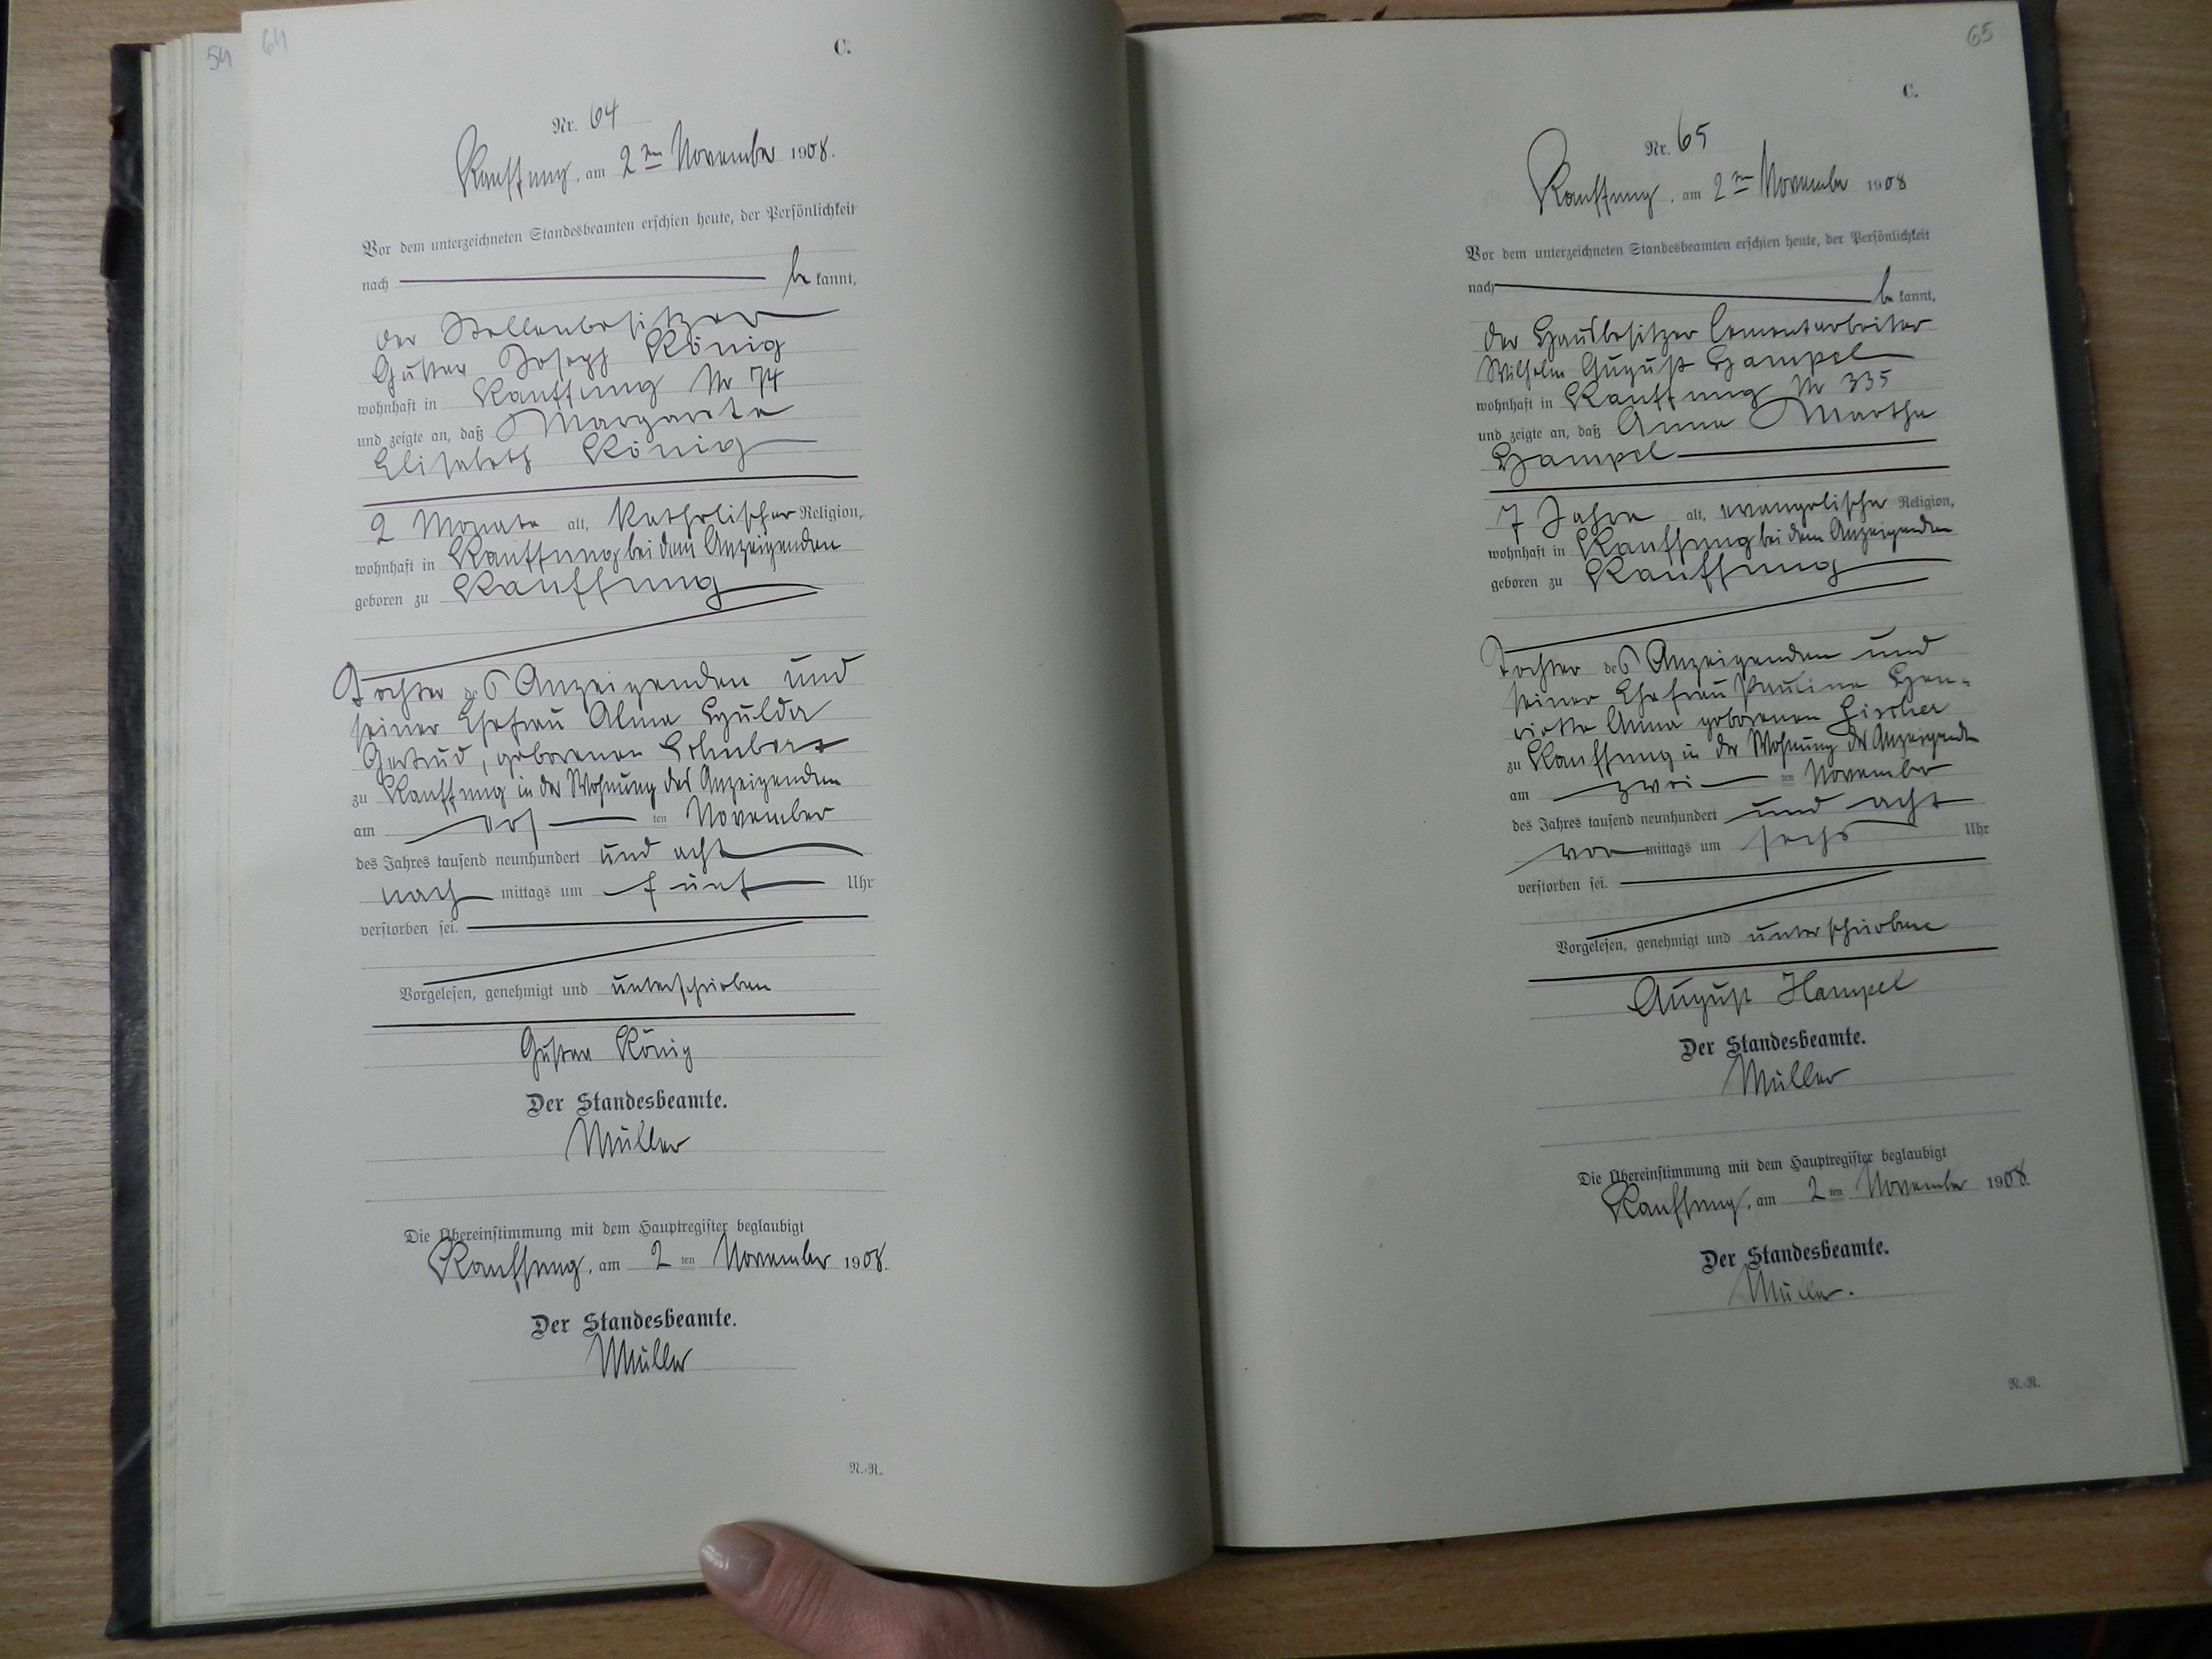 54
64
C.
Nr. 64
Kauffung, am 2ten November 1908.
Vor dem unterzeichneten Standesbeamten erschien heute, der Persönlichkeit
nach be kannt,
der Stellenbesitzer
Gustav Joseph König
wohnhaft in Kauffung Nr 74
und zeigte an, daß Margarete
Elisabeth König
2 Monate alt, katholischer Religion,
wohnhaft in Kauffung bei dem Anzeigenden
geboren zu Kauffung
Tochter des Anzeigenden und
seiner Ehefrau Alma Hulda
Gertrud, geborenen Schubert
zu Kauffung in der Wohnung des Anzeigenden
am ersten November
des Jahres tausend neunhundert und acht
nach mittags um fünf Uhr
verstorben sei.
Vorgelesen, genehmigt und unterschrieben
Gustav König
Der Standesbeamte.
Müller
Die Übereinstimmung mit dem Hauptregister beglaubigt
Kauffung, am 2ten November 1908.
Der Standesbeamte.
Müller
N.-R.
65
C.
Nr. 65
Kauffung, am 2ten November 1908
Vor dem unterzeichneten Standesbeamten erschien heute, der Persönlichkeit
nach be kannt,
der Hausbesitzer Cementarbeiter
Wilhelm August Hampel
wohnhaft in Kauffung Nr 335
und zeigte an, daß Anna Martha
Hampel
7 Jahre alt, evangelischer Religion,
wohnhaft in Kauffung bei dem Anzeigenden
geboren zu Kauffung
Tochter des Anzeigenden und
seiner Ehefrau Pauline Hen-
riette Anna geborenen Fischer
zu Kauffung in der Wohnung des Anzeigenden
am zweiten November
des Jahres tausend neunhundert und acht
vor mittags um sechs Uhr
verstorben sei.
Vorgelesen, genehmigt und unterschrieben
August Hampel
Der Standesbeamte.
Müller
Die Übereinstimmung mit dem Hauptregister beglaubigt
Kauffung, am 2ten November 1908.
Der Standesbeamte.
Müller.
N.-R.